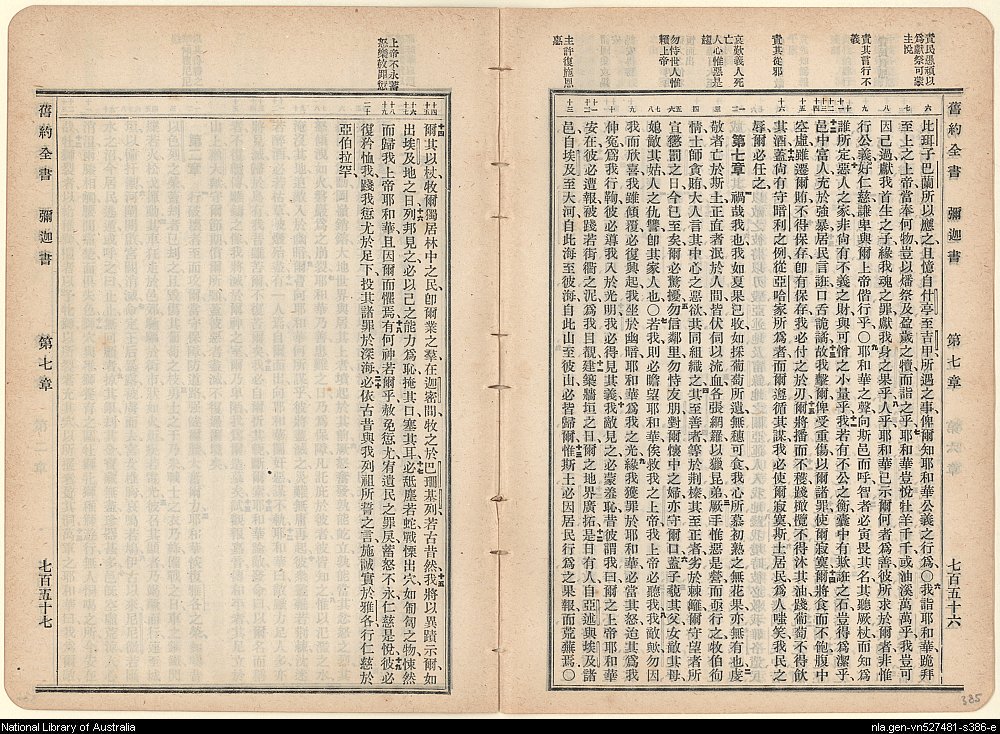 責民愚頑以
爲獻祭可蒙
主悅
責其言行不
義
責其從邪
哀歎義人死
亡
人心惟惡是
趨
勿恃世人惟
賴上帝
主許復施恩
惠
舊約全書 彌迦書 第七章 七百五十六
此珥子巴蘭所以應之且憶自什亭至吉甲所遇之事俾爾知耶和華公義之行爲〇我詣耶和華跪拜
至上之上帝當奉何物豈以燔祭及盈歲之犢而詣之乎耶和華豈悅牡羊千千或油溪萬萬乎我豈可
因己過獻我首生之子緣我魂之罪獻我身之果乎人乎耶和華已示爾何者爲善彼所求於爾者非惟
行公義好仁慈謙卑與爾上帝偕行乎〇耶和華之聲向斯邑而呼智者必寅畏其名其聽厥杖而知爲
誰所定惡人之家非尚有不義之財與可憎之小量乎我若有不公之衡囊中有欺誑之石豈得爲潔乎
邑中富人充於強暴居民言誑口舌詭譎故我擊爾俾受重傷以爾諸罪使爾寂寞爾將食而不飽腹中
空虛雖遷爾賄不得保存卽有保存我必付之於刃爾將播而不穫踐橄欖不得沐其油踐葡萄不得飲
其酒蓋尚有守暗利之例從亞哈家所爲者而爾遵循其謀我必使爾寂寞斯土居民爲人嗤笑我民之
辱爾必任之
第七章 禍哉我也我如夏果已收如採葡萄所遺無穗可食我心所慕初熟之無花果亦無有也虔
敬者亡於斯土正直者泯於人間皆伏伺以流血各張網羅以獵昆弟厥手惟惡是營而亟行之牧伯徇
情士師貪賄大人言其中心之惡欲其同組織之其至善者等於荆榛其至正者劣於棘籬爾守望者所
宣懲罰之日今已至矣爾必驚擾勿信鄰里勿恃友朋對爾懷中之婦亦守爾口蓋子藐其父女敵其母
媳敵其姑人之仇讐卽其家人也〇若我則必瞻望耶和華俟救我之上帝我上帝必聽我我敵歟勿因
我而欣喜我雖傾覆必復興起我坐於幽暗耶和華爲我之光緣我獲罪於耶和華必當其怒迨其爲我
伸寃爲我行鞫彼必導我入於光明我必得見其義我敵見之必蒙羞恥昔彼謂我曰爾之上帝耶和華
安在彼必遭報被踐若街衢之泥爲我目覩建築牆垣之日爾之地界廣拓是日有人自亞述與埃及諸
邑自埃及至大河自此海至彼海自此山至彼山必皆歸爾惟斯土必因居民行爲之果報而荒蕪焉〇
上帝不永蓄
怒樂赦罪愆
爾其以杖牧爾獨居林中之民卽爾業之羣在迦密間牧之於巴珊基列若古昔然我將以異蹟示爾如
出埃及地之日列邦見之必以己之能力爲恥掩其口塞其耳必舐塵若蛇戰慄出穴如匍匐之物悚然
而歸我上帝耶和華且因爾而懼焉有何神若爾乎赦免愆尤宥遺民之罪戾蓄怒不永仁慈是悅彼必
復矜恤我踐我愆尤於足下投其諸罪於深海必依古昔與我列祖所誓之言施誠實於雅各行仁慈於
亞伯拉罕
舊約全書 彌迦書 第七章 七百五十七
385
National Library of Australia
nla.gen-vn527481-s386-e